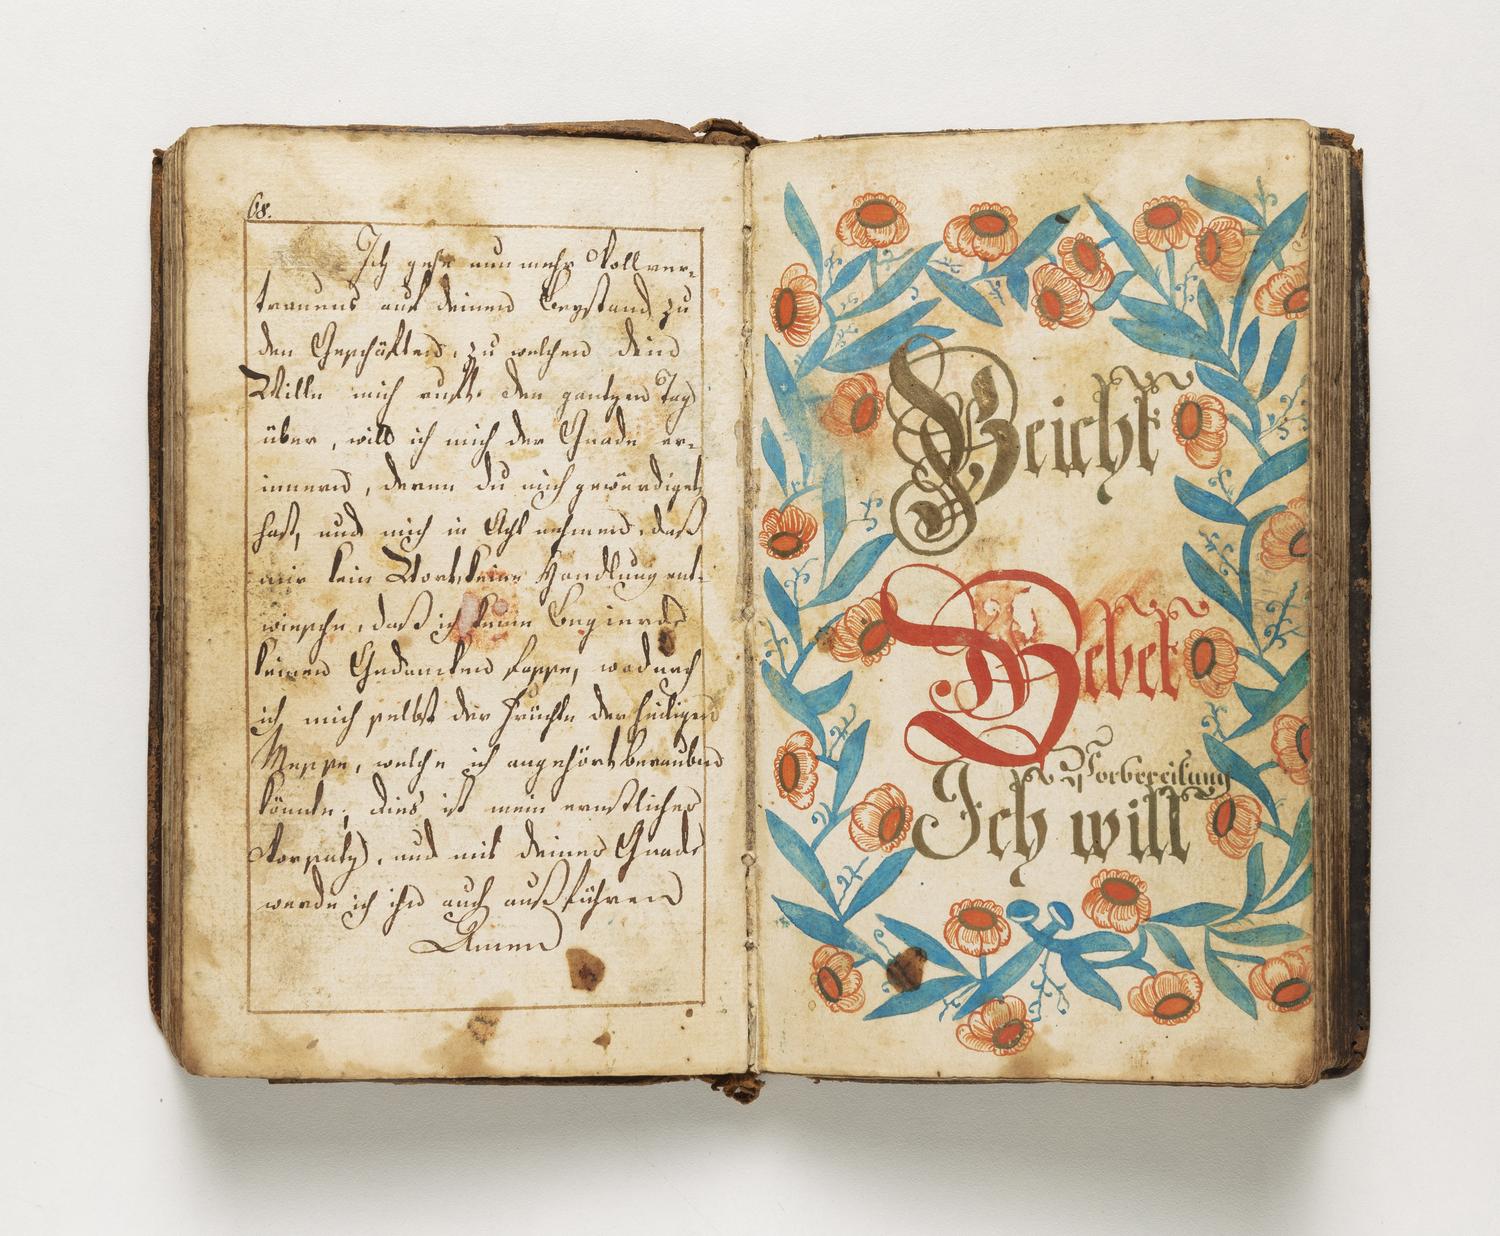 68.
Ich gehe nun mehr Vollver-
trauens auf deinen Beystand zu
den Geschäften, zu welchen dein
Wille mich ruft. den gantzen Tag
über, will ich mich der Gnade er-
innern, deren du mich gewürdiget
hast, und mich in Acht nehmen, daß
mir kein Wort, keine Handlung ent-
wische, daß ich keine Begierde
keinen Gedancken fasse, wodurch
ich mich selbst der Früchte der heiligen
Messe, welche ich angehört berauben
könnte, dies ist mein ernstlicher
Vorsatz, und mit deiner Gnade
werde ich ihn auch ausführen
Amen
Beicht
Gebet
Vorbereitung
Ich will